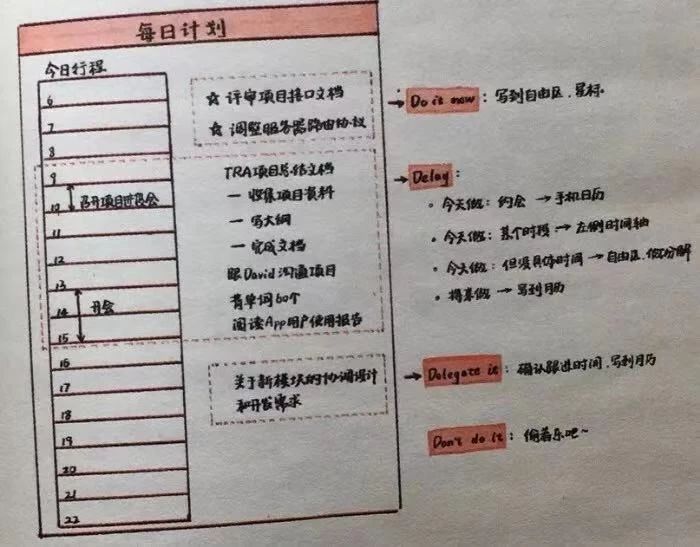 每日计划
今日行程
6
7
8
9
10 召开项目进度会
11
12
13
14 开会
15
16
17
18
19
20
21
22
☆ 评审项目接口文档
☆ 调整服务器路由协议
TRA项目总结文档
— 收集项目资料
— 写大纲
— 完成文档
跟David沟通项目
背单词60个
阅读App用户使用报告
关于新模块的协调设计
和开发需求
Do it now：写到自由区.星标.
Delay：
· 今天做：约会 → 手机日历
· 今天做：某个时段 → 左侧时间轴
· 今天做：但没具体时间 → 自由区.做好分解
· 将来做 → 写到月历
Delegate it：确认跟进时间,写到月历
Don't do it：偷着乐吧~